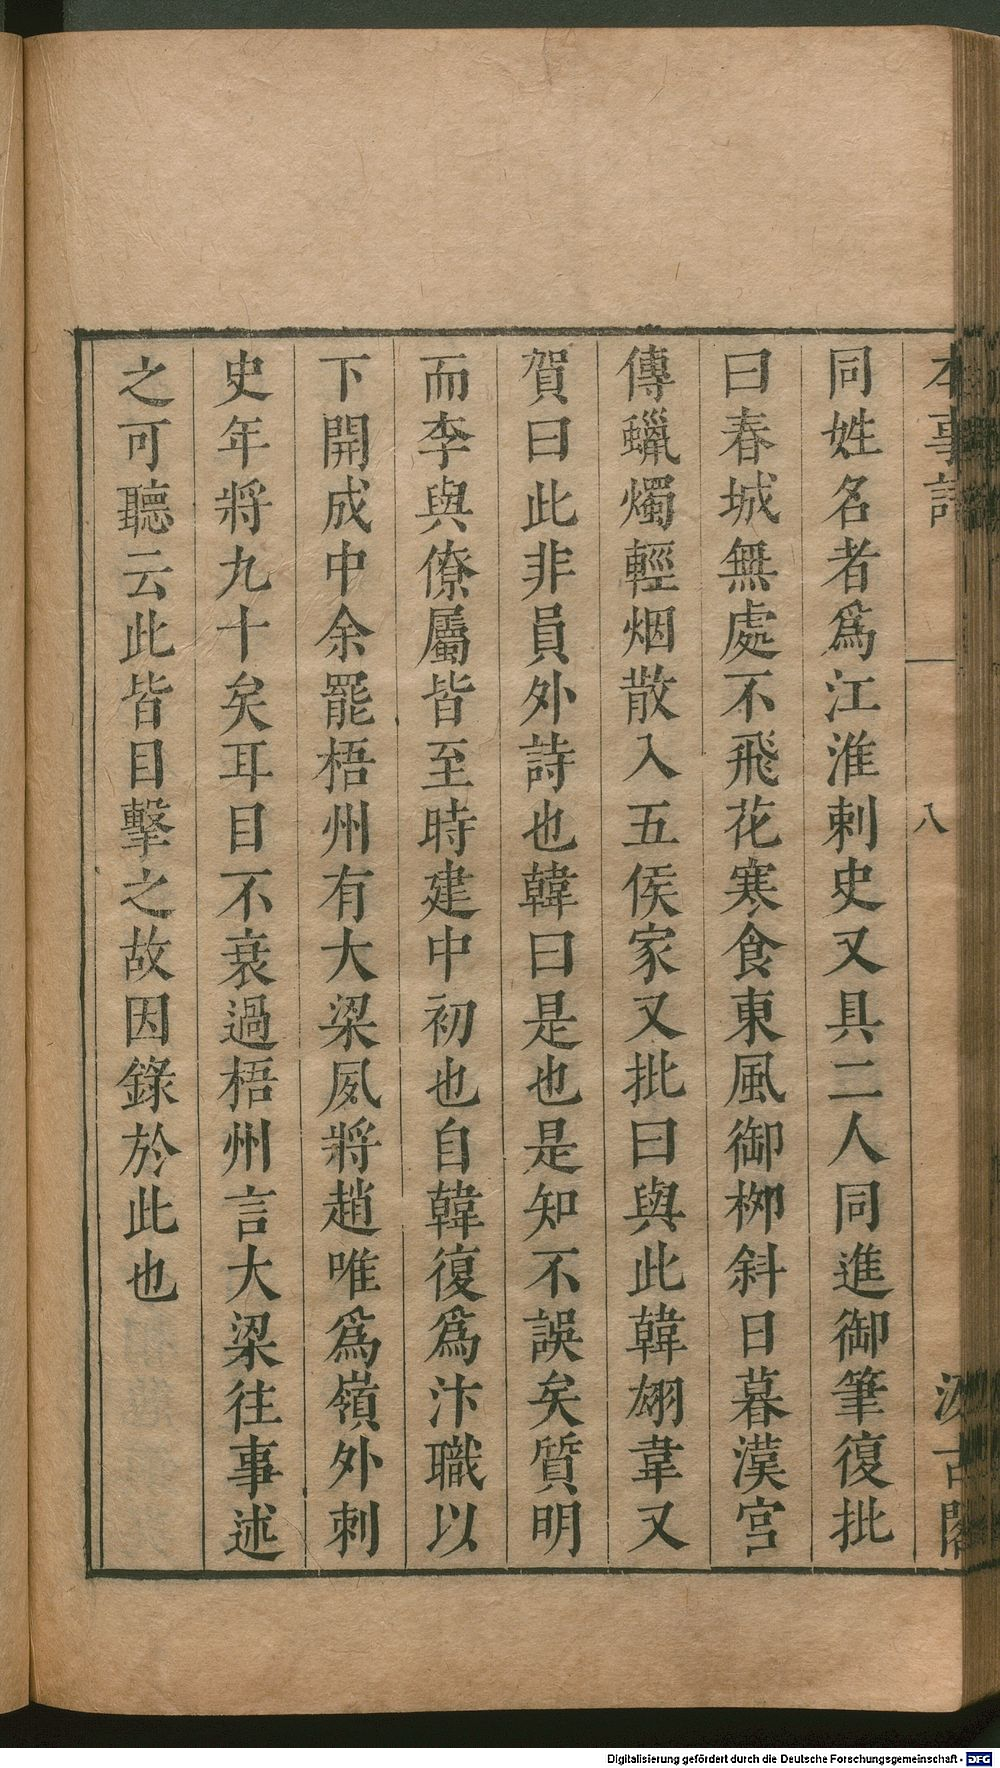 本事詩 八 汲古閣
同姓名者爲江淮刺史又具二人同進御筆復批
曰春城無處不飛花寒食東風御栁斜日暮漢宮
傳蠟燭輕烟散入五侯家又批曰與此韓翃韋又
賀曰此非員外詩也韓曰是也是知不誤矣質明
而李與僚屬皆至時建中初也自韓復爲汴職以
下開成中余罷梧州有大梁夙將趙唯爲嶺外刺
史年將九十矣耳目不衰過梧州言大梁往事述
之可聽云此皆目擊之故因錄於此也
Digitalisierung gefördert durch die Deutsche Forschungsgemeinschaft - DFG